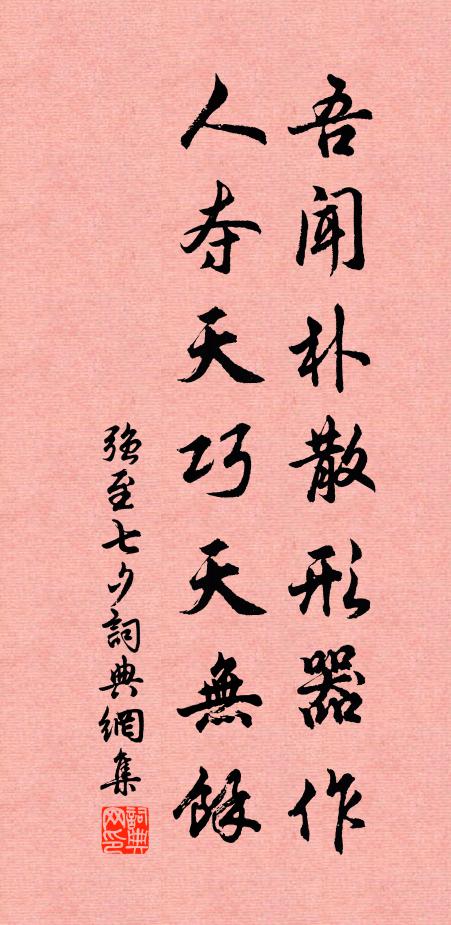 吾闻朴散形器作
人夺天巧天無餘
强至七夕詞典網集
詞典网印